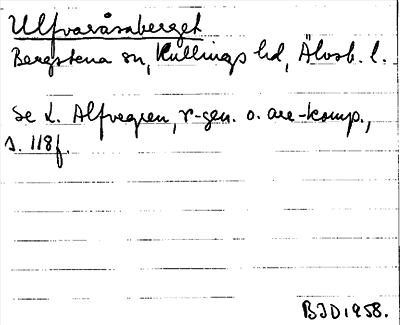 Ulfvaråsaberget
Bergstena sn, Kullings hd, Älvsb. l.
Se L. Alfvegren, r-gen. o. are-komp.,
s. 118f.
BJD 1958.